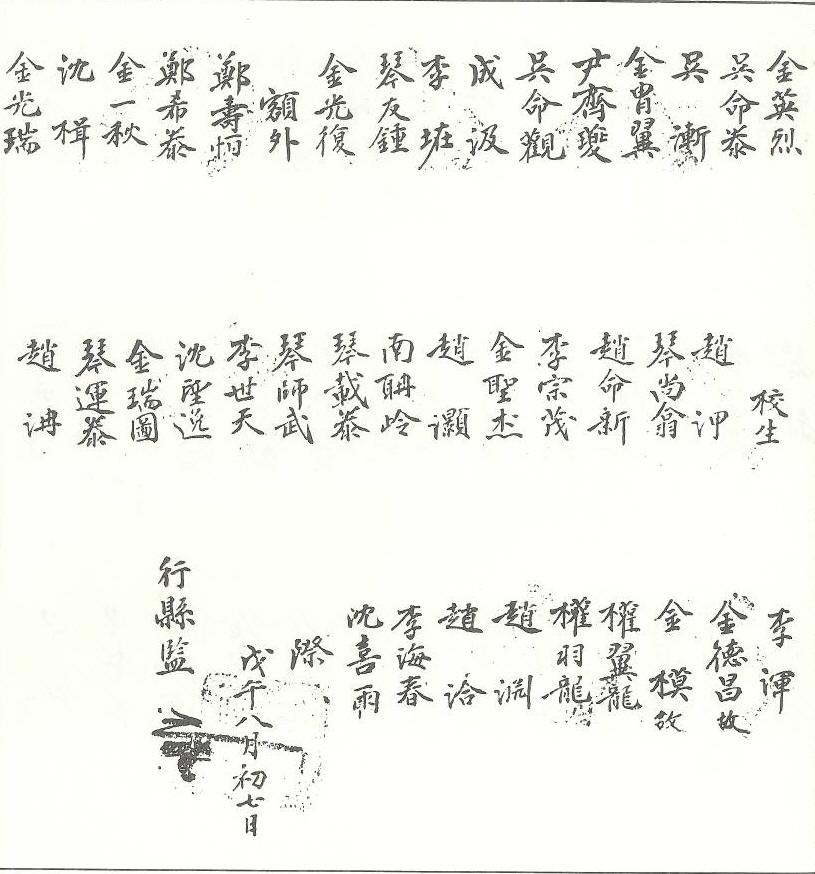 金英烈
吳命泰
吳漸
金胄翼
尹齊夔
吳命觀
成汲
李垙
琴友鍾
金光復
額外
鄭壽
鄭希泰
金一秋
沈楫
金光瑞
校生
趙
琴尚翕
趙命新
李宗茂
金聖杰
趙灝
南聃岭
琴載泰
琴師武
李世天
沈聖逸
金瑞圖
琴運泰
趙
李渾
金德昌故
金模故
權翼龍
權羽龍
趙渊
趙洽
李海春
沈喜雨
際
戊午八月初七日
行縣監